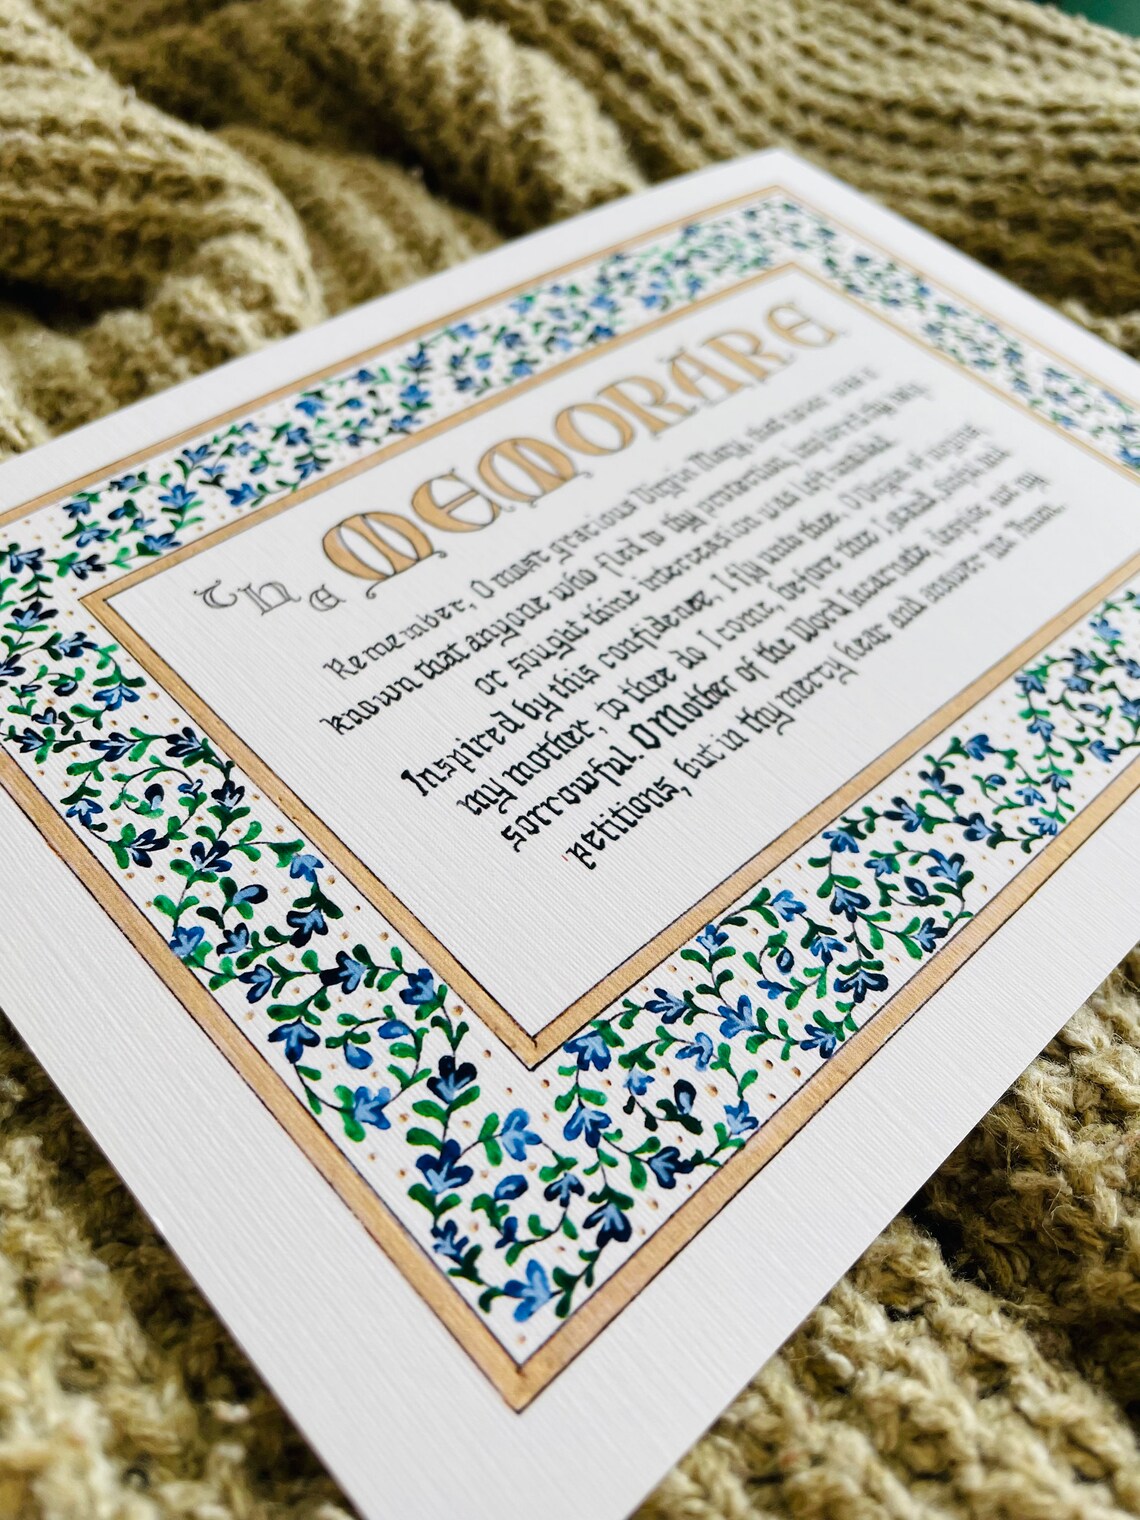 The MEMORARE
Remember, O most gracious Virgin Mary, that never was it
known that anyone who fled to thy protection, implored thy help,
or sought thine intercession was left unaided.
Inspired by this confidence, I fly unto thee, O Virgin of virgins
my mother, to thee do I come, before thee I stand, sinful and
sorrowful. O Mother of the Word Incarnate, despise not my
petitions, but in thy mercy hear and answer me Amen.